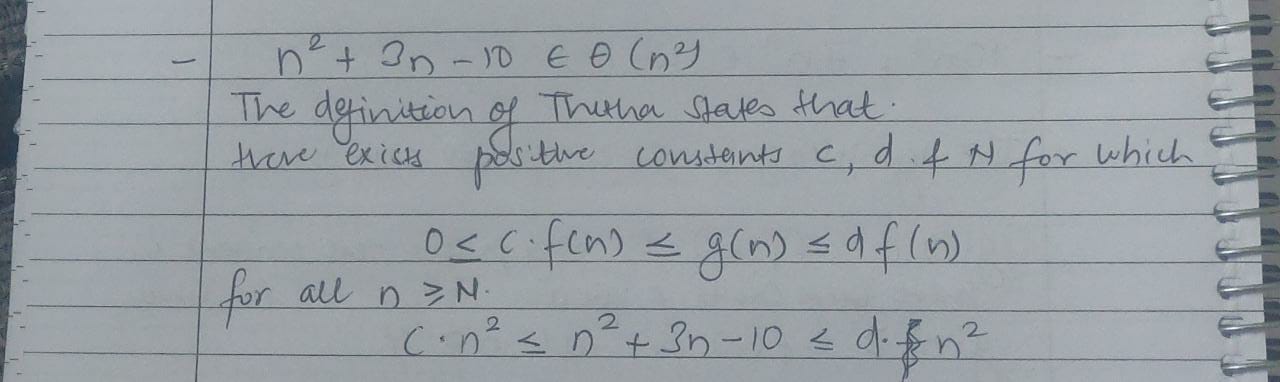 - n² + 3n - 10 ∈ θ (n²)
The definition of Thetha states that.
there exists positive constants c, d & N for which
0 ≤ c·f(n) ≤ g(n) ≤ d f(n)
for all n ≥ N.
C·n² ≤ n² + 3n - 10 ≤ d· n²